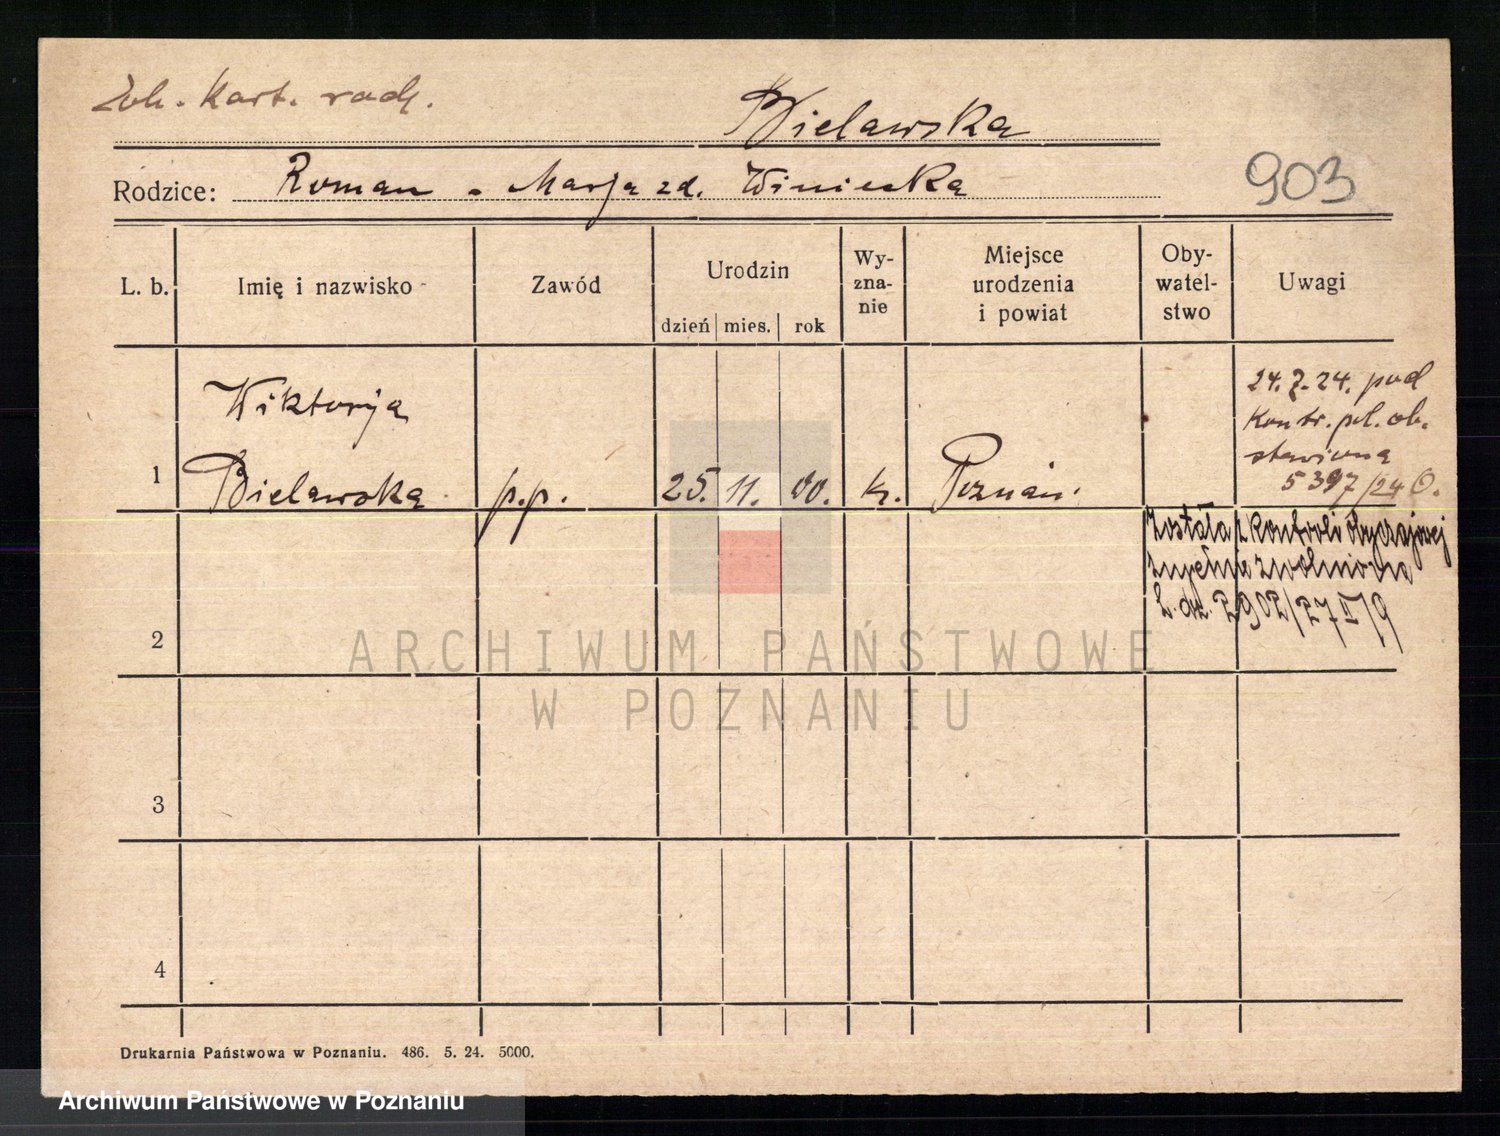 Zob. Kart. rodz.
Bielawska
Rodzice: Roman - Marja zd. Winiecka
903
L. b. Imię i nazwisko Zawód Urodzin dzień mies. rok Wy-zna-nie Miejsce urodzenia i powiat Oby-watel-stwo Uwagi
1 Wiktorja
Bielawska p.p. 25. 11. 00. kr. Poznań.
24.7.24. pod
kontr. pol. ob.
stawiona
5397/24 O.
Została z kontroli obyczajowej
zupełnie zwolniona
L. dz. 2902/27 II/9
2
3
4
ARCHIWUM PAŃSTWOWE
W POZNANIU
Drukarnia Państwowa w Poznaniu. 486. 5. 24. 5000.
Archiwum Państwowe w Poznaniu